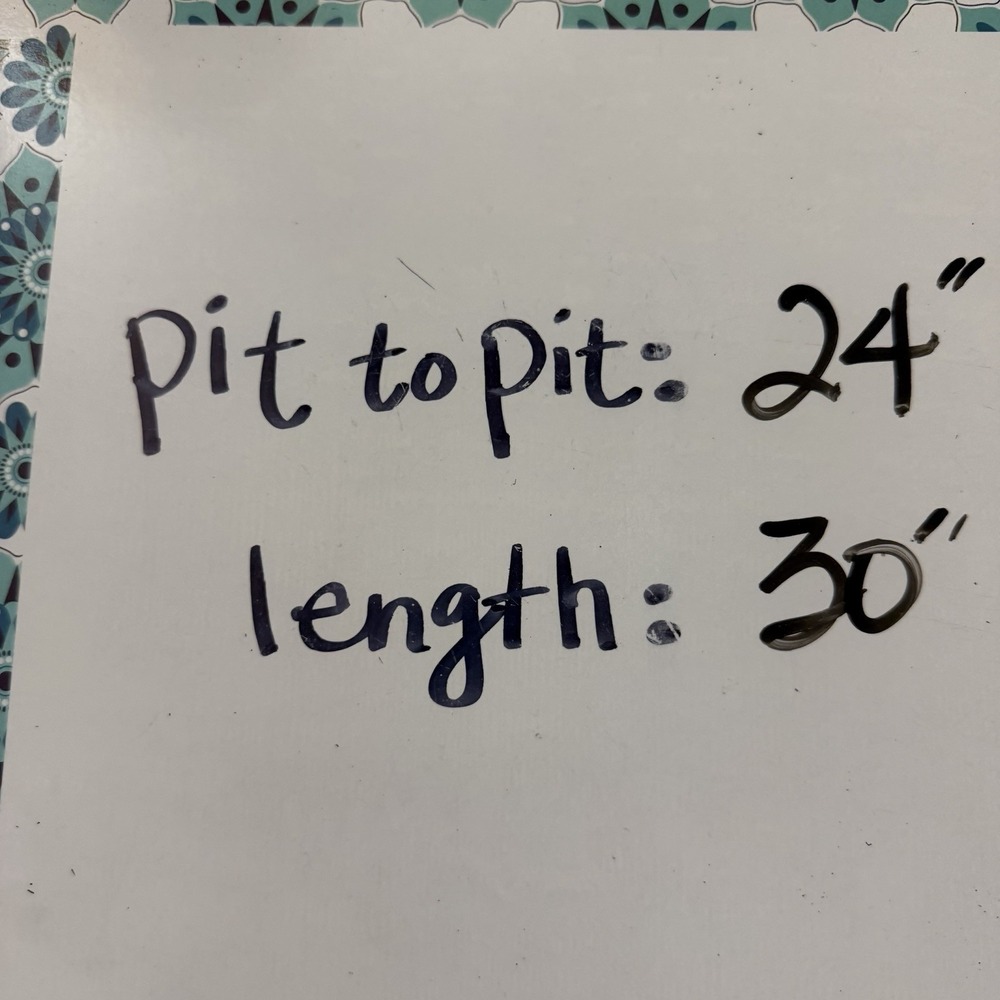 pit to pit: 24"
length: 30"